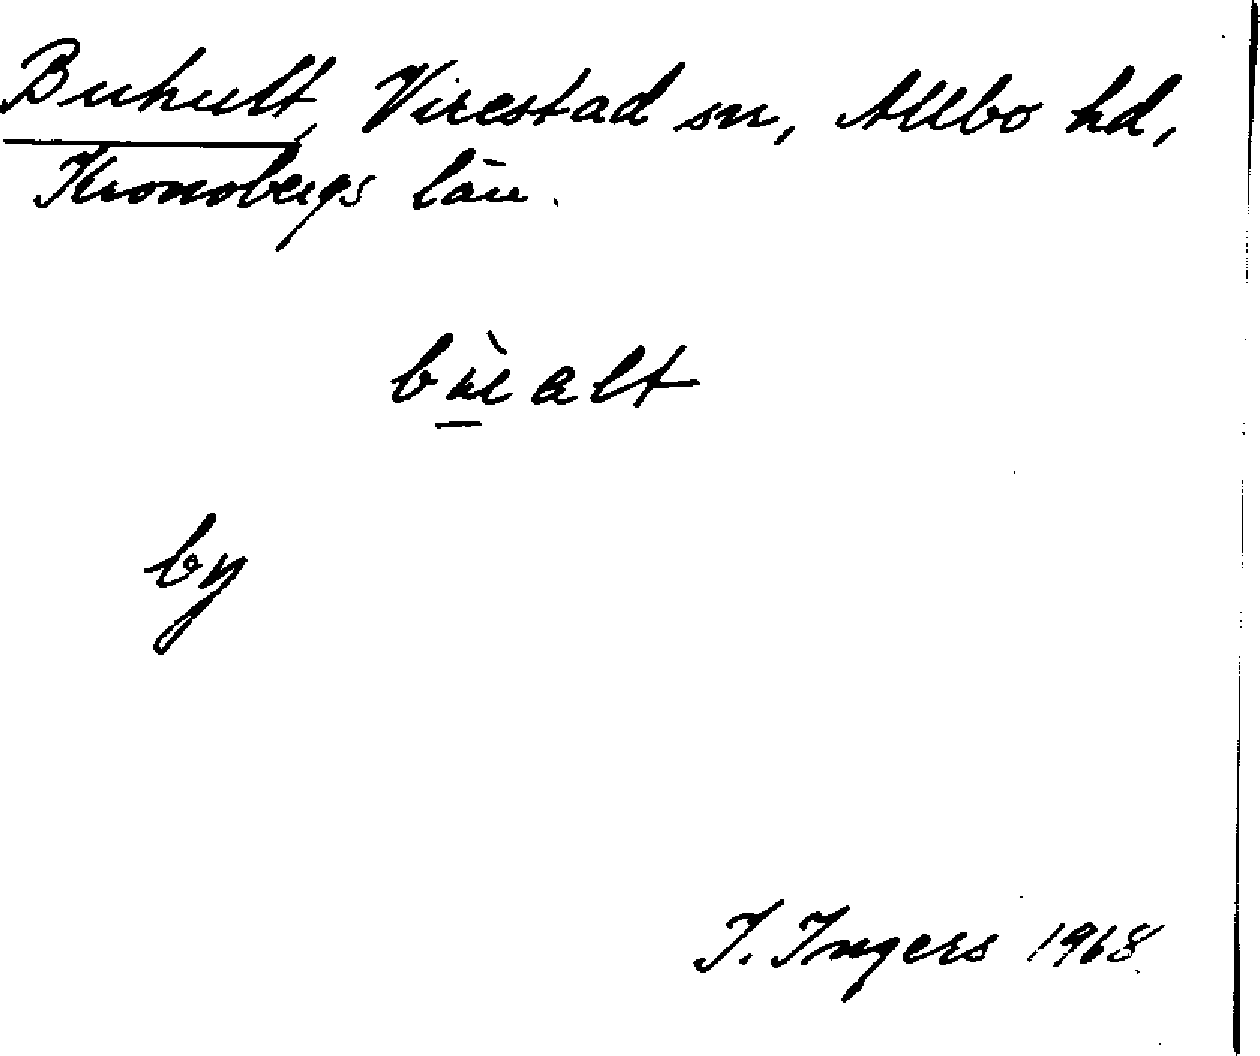 Buhult, Virestad sn, Allbo hd,
Kronobergs län.
by
I. Ingers 1968